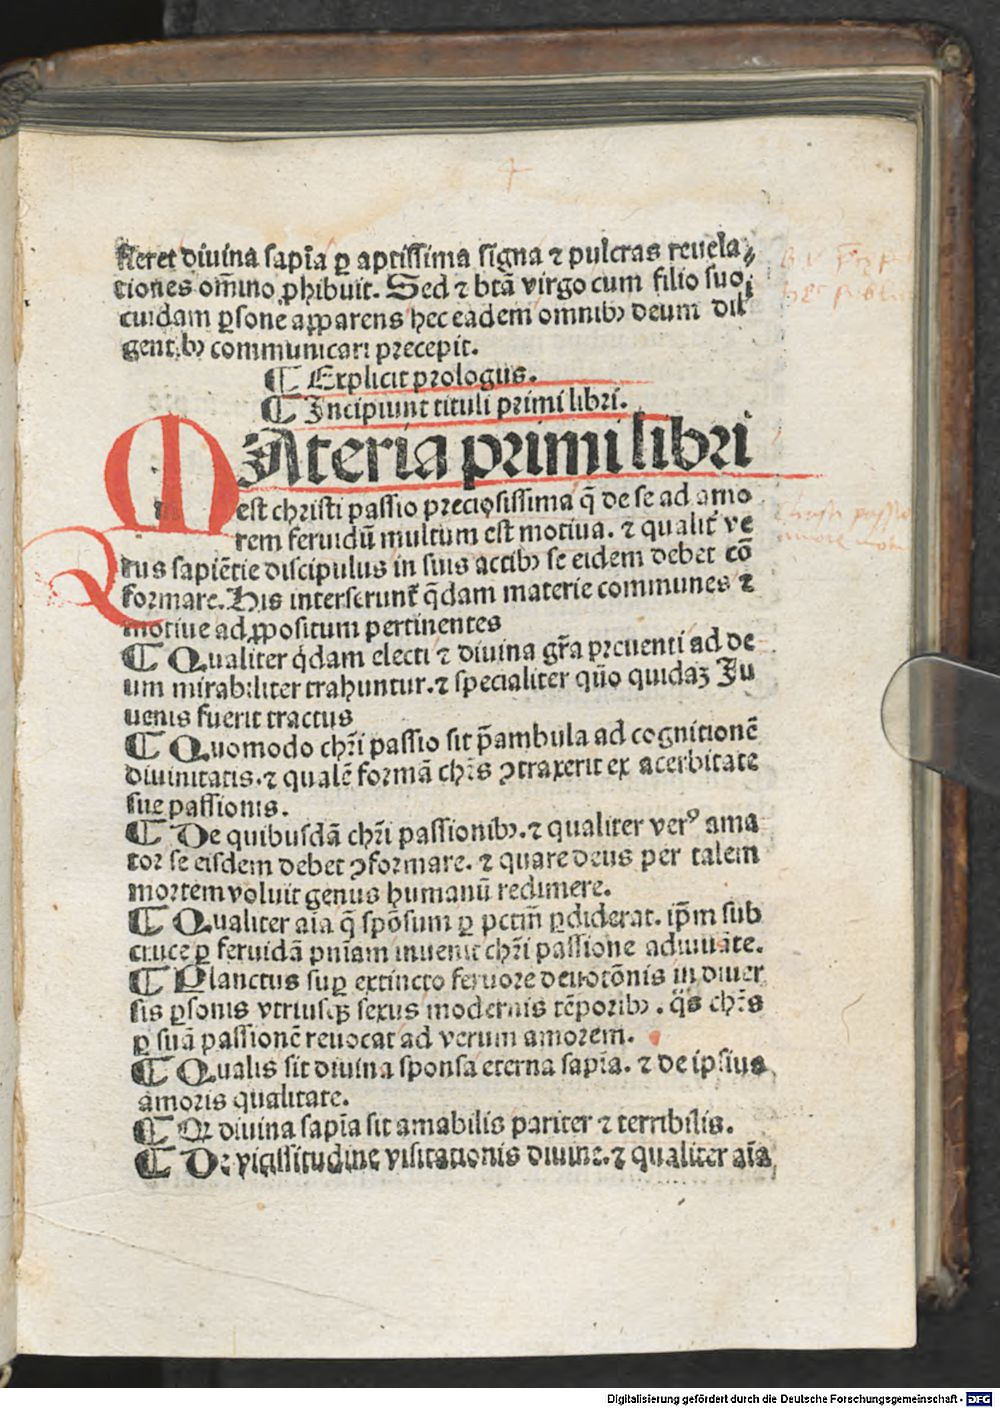 neret diuina sapīa ꝑ aptissima signa ⁊ pulcras reuela⸗
ciones om̄ino ꝓhibuit. Sed ⁊ btā virgo cum filio suo
cuidam ꝑsone apparens hec eadem omnibꝰ deum dili
gentibꝰ communicari precepit.
¶ Explicit prologus.
¶ Incipiunt tituli primi libri.
MAteria primi libri
est christi passio preciosissima q̄ de se ad amo
rem feruidū multum est motiua. ⁊ qualit̄ ve
rus sapiētie discipulus in suis actibꝰ se eidem debet cō
formare. His interserunt̄ q̄dam materie communes ⁊
motiue ad ꝓpositum pertinentes
¶ Qualiter q̇dam electi ⁊ diuina gr̄a preuenti ad de
um mirabiliter trahuntur. ⁊ specialiter quō quidaꝫ Iu
uenis fuerit tractus
¶ Quomodo chr̄i passio sit p̄ambula ad cognitionē
diuinitatis. ⁊ qualē formā chr̄s ꝯtraxerit ex acerbitate
sue passionis.
¶ De quibusdā chr̄i passionibꝰ. ⁊ qualiter verꝰ ama
tor se eisdem debet ꝯformare. ⁊ quare deus per talem
mortem voluit genus humanū redimere.
¶ Qualiter aīa q̄ spōsum ꝑ pctm̄ ꝑdiderat. ip̄m sub
cruce ꝑ feruidā pn̄iam inuenit chr̄i passione adiuuāte.
¶ Planctus suꝑ extincto feruore deuotōnis in diuer
sis ꝑsonis vtriusqꝫ sexus modernis tēporibꝰ. q̄s chr̄s
ꝑ suā passionē reuocat ad verum amorem.
¶ Qualis sit diuina sponsa eterna sapīa. ⁊ de ipsius
amoris qualitate.
¶ Qr diuina sapīa sit amabilis pariter ⁊ terribilis.
¶ De vicissitudine visitationis diuine. ⁊ qualiter aīa
Digitalisierung gefördert durch die Deutsche Forschungsgemeinschaft - DFG